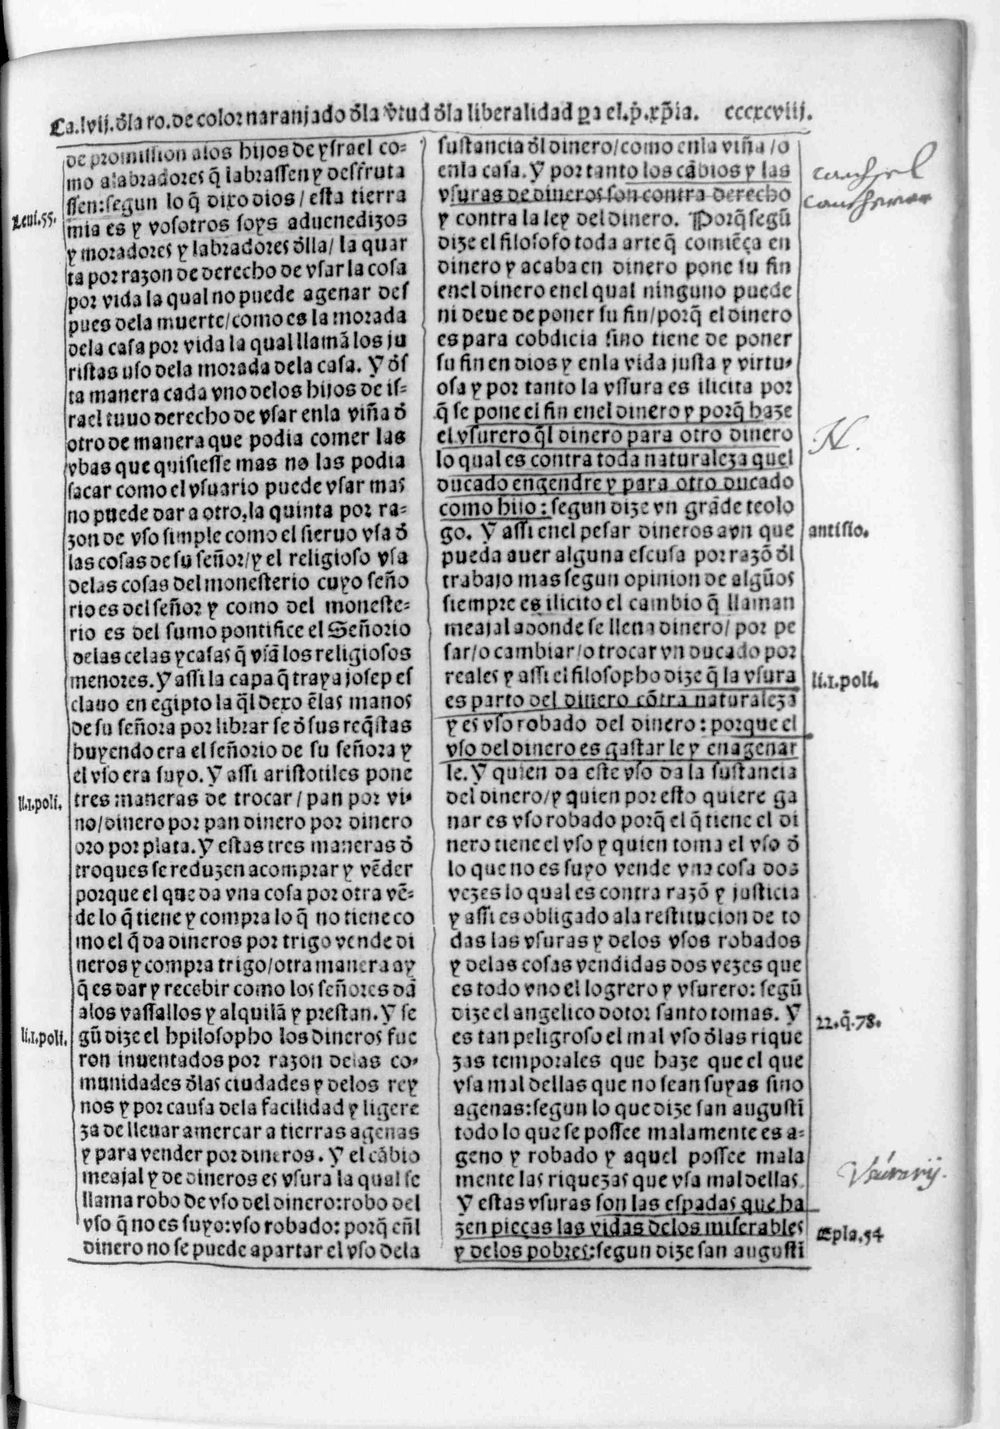 Ca.lvij.d̃la ro.de color naranjado d̃la v̓tud d̃la liberalidad ꝑa el.p̓.xp̃ia. cccxcviij.
de promission alos hijos de ysrael co⸗
mo a labradores q̃ labrassen y desfruta
ssen:segun lo q̃ dixo dios/esta tierra
Leui.55.
mia es y vosotros soys aduenedizos
y moradores y labradores d̃lla/la quar
ta por razon de derecho de vsar la cosa
por vida la qual no puede agenar des
pues dela muerte/como es la morada
dela casa por vida la qual llamã los ju
ristas vso dela morada dela casa. Y d̓s
ta manera cada vno delos hijos de is⸗
rael tuuo derecho de vsar enla viña d̓
otro de manera que podia comer las
vbas que quisiesse mas no las podia
sacar como el vsuario puede vsar mas
no puede dar a otro,la quinta por ra⸗
zon de vso simple como el sieruo vsa d̓
las cosas de su señor/y el religioso vsa
delas cosas del monesterio cuyo seño
rio es del señor y como del moneste⸗
rio es del sumo pontifice el Señorio
delas celas y casas q̃ vsã los religiosos
menores.Y assi la capa q̃ traya josep es
clauo en egipto la q̃l dexo ẽlas manos
de su señora por librar se d̓ sus req̃stas
huyendo era el señorio de su señora y
el vso era suyo.Y assi aristotiles pone
tres maneras de trocar/pan por vi⸗
li.1.poli.
no/dinero por pan dinero por dinero
oro por plata.Y estas tres maneras d̓
troques se reduzen a comprar y vẽder
porque el que da vna cosa por otra vẽ⸗
de lo q̃ tiene y compra lo q̃ no tiene co
mo el q̃ da dineros por trigo vende di
neros y compra trigo/otra manera ay
q̃ es dar y recebir como los señores dã
alos vassallos y alquilã y prestan.Y se
gũ dize el hpilosopho los dineros fue
li.1.poli.
ron inuentados por razon delas co⸗
munidades d̃las ciudades y delos rey
nos y por causa dela facilidad y ligere
za de lleuar a mercar a tierras agenas
y para vender por dineros. Y el cãbio
meajal y de dineros es vsura la qual se
llama robo de vso del dinero:robo del
vso q̃ no es suyo:vso robado: porq̃ eñl
dinero no se puede apartar el vso dela
sustancia d̃l dinero/como enla viña/o
enla casa.Y por tanto los cãbios y las
vsuras de dineros son contra derecho
y contra la ley del dinero. Porq̃ segũ
dize el filosofo toda arte q̃ comiẽça en
dinero y acaba en dinero pone su fin
enel dinero enel qual ninguno puede
ni deue de poner su fin/porq̃ el dinero
es para cobdicia sino tiene de poner
su fin en dios y enla vida justa y virtu⸗
osa y por tanto la vssura es ilicita por
q̃ se pone el fin enel dinero y porq̃ haze
el vsurero q̃l dinero para otro dinero
N.
lo qual es contra toda naturaleza quel
ducado engendre y para otro ducado
como hijo:segun dize vn grãde teolo
go. Y assi enel pesar dineros avn que
antisio.
pueda auer alguna escusa por razõ d̃l
trabajo mas segun opinion de algũos
siempre es ilicito el cambio q̃ llaman
meajal adonde se lleua dinero/por pe
sar/o cambiar/o trocar vn ducado por
reales y assi el filosopho dize q̃ la vsura
li.1.poli.
es parto del dinero cõtra naturaleza
y es vso robado del dinero:porque el
vso del dinero es gastar le y enagenar
le.Y quien da este vso da la sustancia
del dinero/y quien por esto quiere ga
nar es vso robado porq̃ el q̃ tiene el di
nero tiene el vso y quien toma el vso d̓
lo que no es suyo vende vna cosa dos
vezes lo qual es contra razõ y justicia
y assi es obligado ala restitucion de to
das las vsuras y delos vsos robados
y delas cosas vendidas dos vezes que
es todo vno el logrero y vsurero: segũ
dize el angelico dotor santo tomas. Y
22.q̃.78.
es tan peligroso el mal vso d̃las rique
zas temporales que haze que el que
vsa mal dellas que no sean suyas sino
agenas:segun lo que dize san augustĩ
todo lo que se possee malamente es a⸗
geno y robado y aquel possee mala
mente las riquezas que vsa mal dellas.
Vsurarij.
Y estas vsuras son las espadas que ha
zen pieças las vidas delos miserables
Epla.54
y delos pobres:segun dize san augustĩ